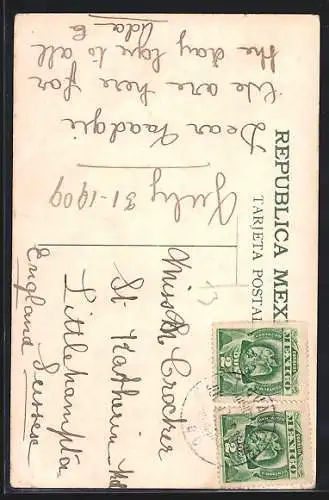 REPUBLICA MEX
TARJETA POSTAL
July 31-1909
Dear
We are here for
the day love to all
Ada
Miss Crocker
St Katherin Rd
Littlehampton
England Sussex
13
MEXICO
MEXICO